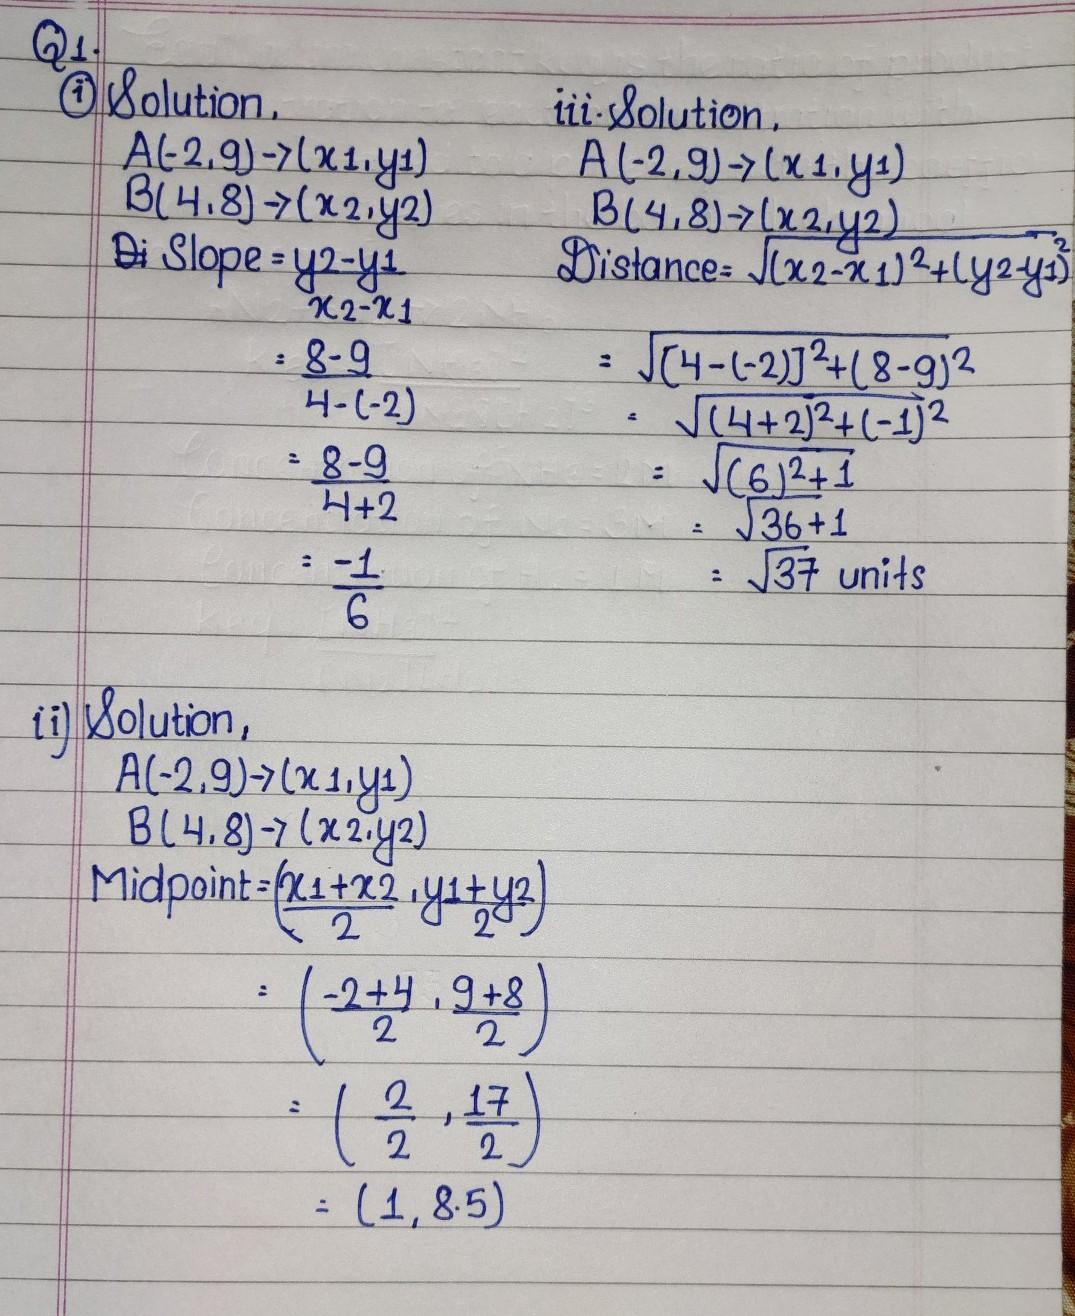 Q1.
i Solution,
A(-2,9)->(x1,y1)
B(4,8)->(x2,y2)
Slope = y2-y1
x2-x1
= 8-9
4-(-2)
= 8-9
4+2
= -1
6
iii. Solution,
A(-2,9)->(x1,y1)
B(4,8)->(x2,y2)
Distance = √(x2-x1)²+(y2-y1)²
= √[4-(-2)]²+(8-9)²
= √(4+2)²+(-1)²
= √(6)²+1
= √36+1
= √37 units
ii) Solution,
A(-2,9)->(x1,y1)
B(4,8)->(x2,y2)
Midpoint = (x1+x2 , y1+y2)
2 2
= (-2+4 , 9+8)
2 2
= (2 , 17)
2 2
= (1, 8.5)